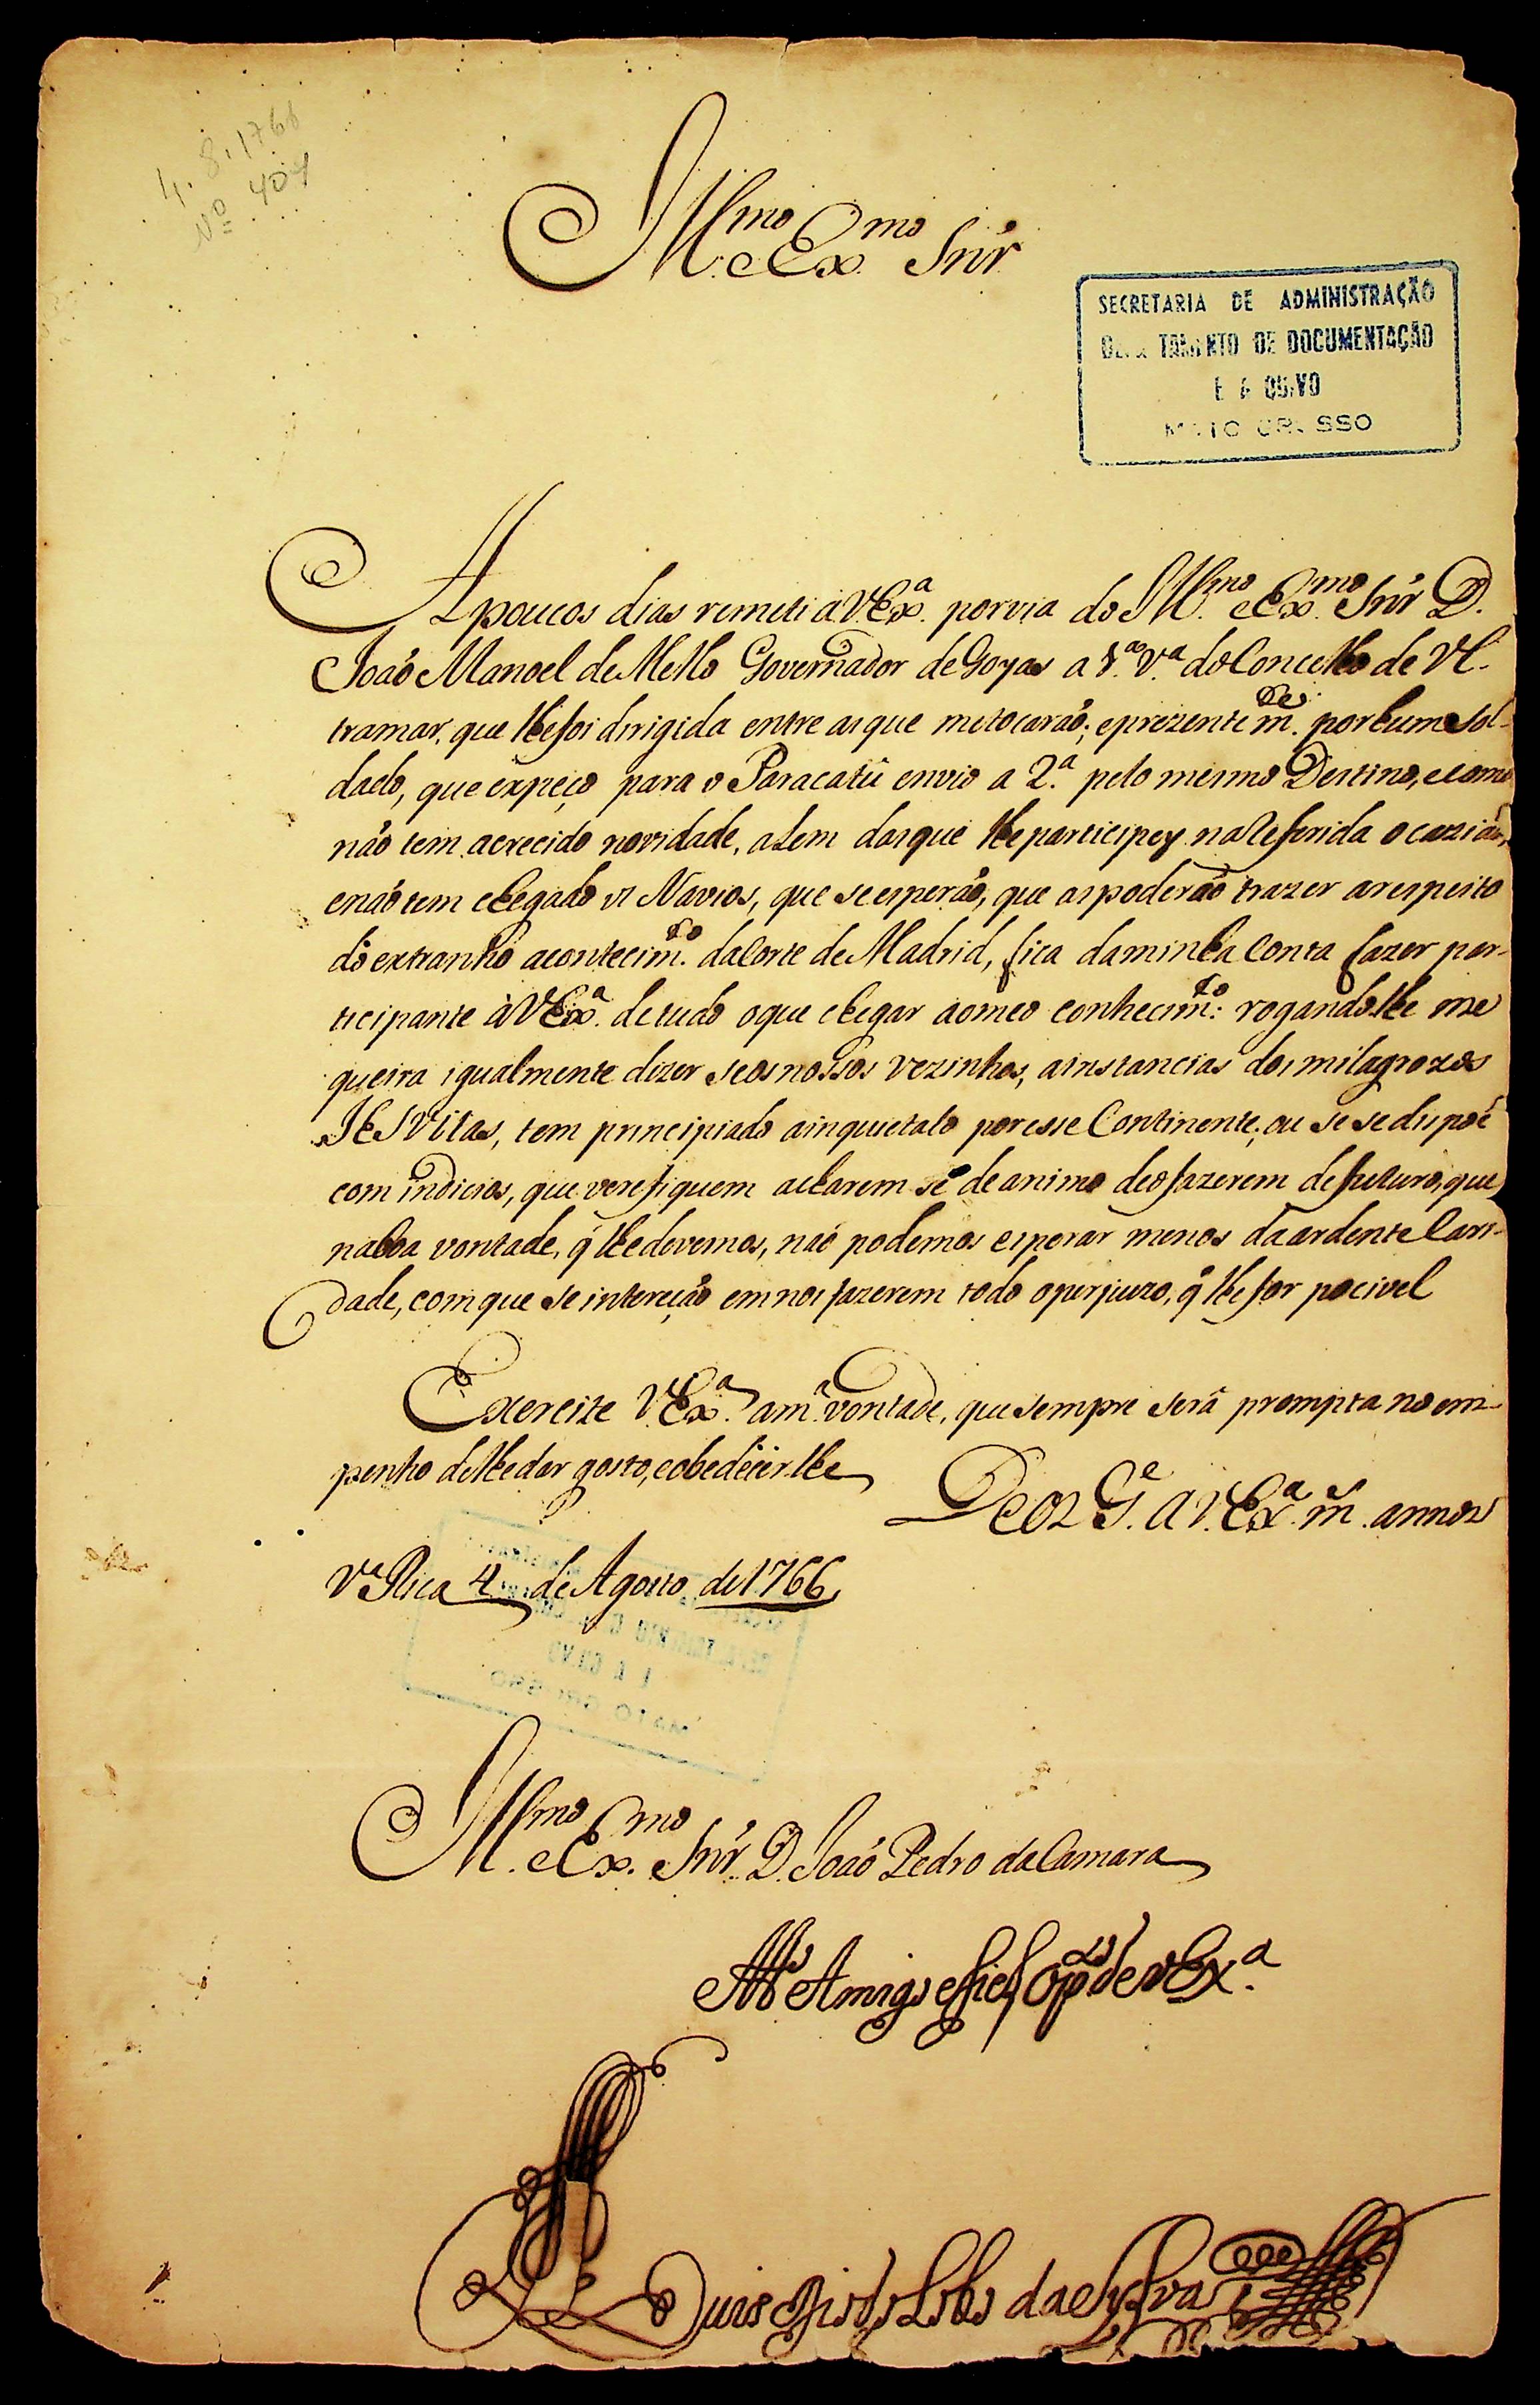 4.8.1766
Nº 404
Illmo. e Exmo. Snr
SECRETARIA DE ADMINISTRAÇÃO
DEPARTAMENTO DE DOCUMENTAÇÃO
E ARQUIVO
MATO GROSSO
A poucos dias remeti á V.Exa. por via do Illmo. e Exmo. Snr D.
João Manoel de Mello Governador de Goyas a 1.ª V.ª do Concelho de Ul-
tramar, que lhe foi dirigida entre as que me tocarão; e prezentem.te por hum sol-
dado, que expeço para o Paracatû envio a 2.ª pelo mesmo Destino, e como
não tem acrecido novidade, alem das que lhe participey na referida ocazião,
e não tem chegado os Navios, que se esperão, que as poderão trazer a respeito
do extranho acontecim.to da Corte de Madrid, fica da minha Conta fazer par-
ticipante à V.Exa. de tudo o que chegar ao meo conhecim.to: rogandolhe me
queira igualmente dizer se os nossos vezinhos, a instancias dos milagrozos
JeSVitas, tem principiado a inquietalo por esse Continente, ou se se dispoé
com indicios, que verefiquem acharem se de animo de o fazerem de futuro, que
na boa vontade, q̃ lhe devemos, não podemos esperar menos da ardente Cari-
dade, com que se intereção em nos fazerem todo o perjuizo, q̃ lhe for pocivel
Exercite V.Exa. a m.ª vontade, que sempre será prompta no em-
penho de lhe dar gosto, e obedecerlhe
Deos G.e a V.Exa. m.s annos
V.ª Rica 4 de Agosto de 1766
Illmo. e Exmo. Snr. D. João Pedro da Camara
Mto Amigo e fiel de V Exa.
Luis Diogo Lobo da Sylva